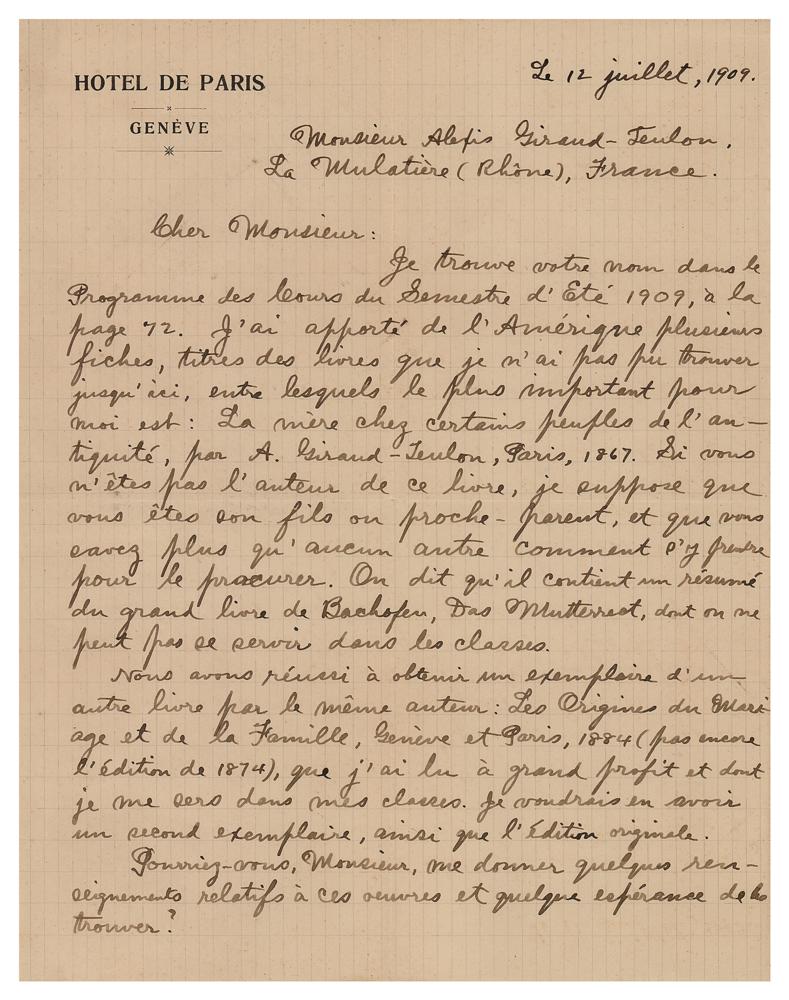 HOTEL DE PARIS
GENÈVE
Le 12 juillet, 1909.
Monsieur Alexis Giraud-Teulon,
La Mulatière (Rhône), France.
Cher Monsieur:
Je trouve votre nom dans le
Programme des Cours du Semestre d'Eté 1909, à la
page 72. J'ai apporté de l'Amérique plusieurs
fiches, titres des livres que je n'ai pas pu trouver
jusqu'ici, entre lesquels le plus important pour
moi est: La mère chez certains peuples de l'an-
tiquité, par A. Giraud-Teulon, Paris, 1867. Si vous
n'êtes pas l'auteur de ce livre, je suppose que
vous êtes son fils ou proche-parent, et que vous
savez plus qu'aucun autre comment s'y prendre
pour le procurer. On dit qu'il contient un résumé
du grand livre de Bachofen, Das Mutterrect, dont on ne
peut pas se servir dans les classes.
Nous avons réussi à obtenir un exemplaire d'un
autre livre par le même auteur: Les Origines du Mari-
age et de la Famille, Genève et Paris, 1884 (pas encore
l'édition de 1874), que j'ai lu à grand profit et dont
je me sers dans mes classes. Je voudrais en avoir
un second exemplaire, ainsi que l'édition originale.
Pourriez-vous, Monsieur, me donner quelques ren-
seignements relatifs à ces oeuvres et quelque espérance de les
trouver?